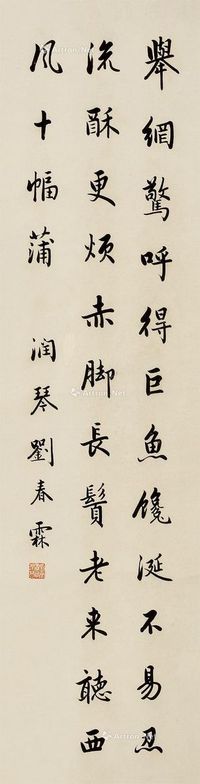 舉網驚呼得巨魚饞涎不易忍
流酥更煩赤脚長鬚老来聽西
風十幅蒲
润琴劉春霖